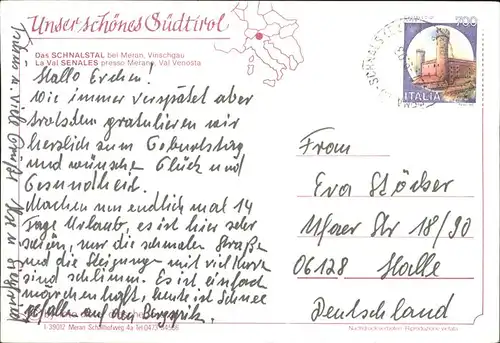 Unser schönes Südtirol
Das SCHNALSTAL bei Meran, Vinschgau
La Val SENALES presso Merano, Val Venosta
Hallo Evchen!
Wie immer verspätet aber
trotzdem gratulieren wir
herzlich zum Geburtstag
und wünschen Glück und
Gesundheit.
Machen nun endlich mal 14
Tage Urlaub, es ist hier sehr
schön, nur die schmalen Straßen
und die Steigungen mit viel Kurven
sind schlimm. Es ist einfach
märchenhaft, heute ist Schnee
gefallen auf den Berggipfel.
u. viele Grüße
I-39012 Meran
700
ITALIA
SCHNALSTAL
From
Eva Stöcker
Ufaer Str 18/90
06128 Halle
Deutschland
Nachdruck verboten Riproduzione vietata